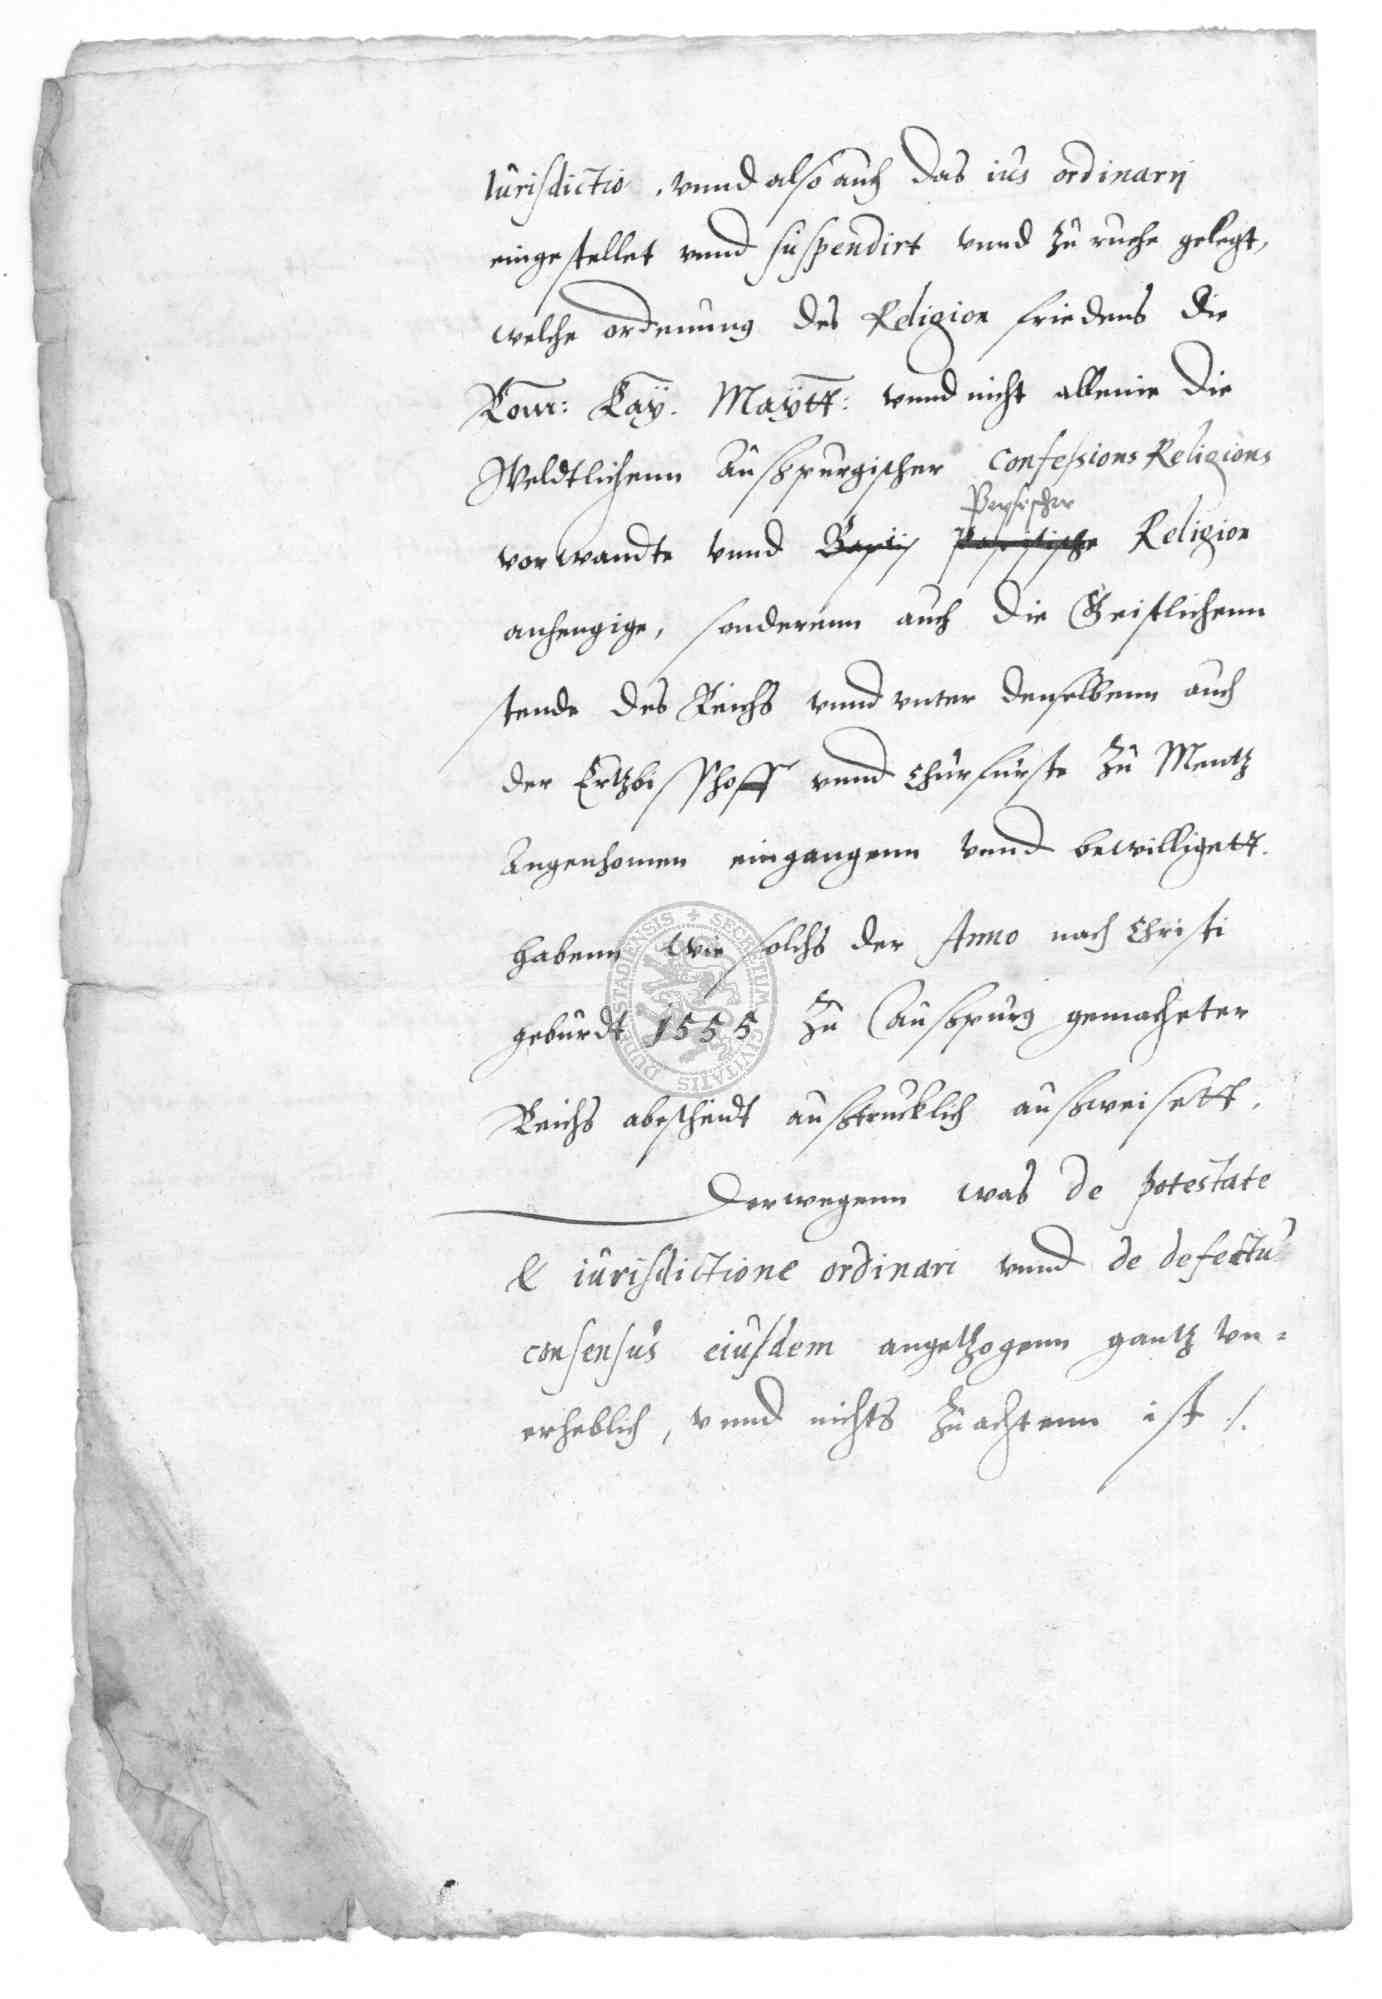 Iurisdictio, vnnd also auch das ius ordinarij
eingestellet vnnd suspendirt vnnd zu ruhe gelegt,
welche ordenung des Religion friedens die
Rom: Kay. Maytt: vnnd nicht alleine die
Weldtlichenn Außpurgischer Confessions Religions
Papistischer
vorwandte vnnd Religion
anhengige, sonderenn auch die Geistlichenn
stende des Reichs vnnd vnter denselbenn auch
der Ertzbisschoff vnnd Churfurste zu Mentz
Angenhomen eingangenn vnnd bewilligett
habenn wie solchs der Anno nach Christi
geburdt 1555 zu Außpurg gemacheter
Reichs abescheidt austrucklich außweisett.
Derwegenn was de potestate
& iurisdictione ordinari vnnd de defectu
consensus eiusdem angetzogenn gantz vn=
erheblich, vnnd nichts zuachtenn ist /.
SECRETUM CIVITATIS RUDELSTADIENSIS